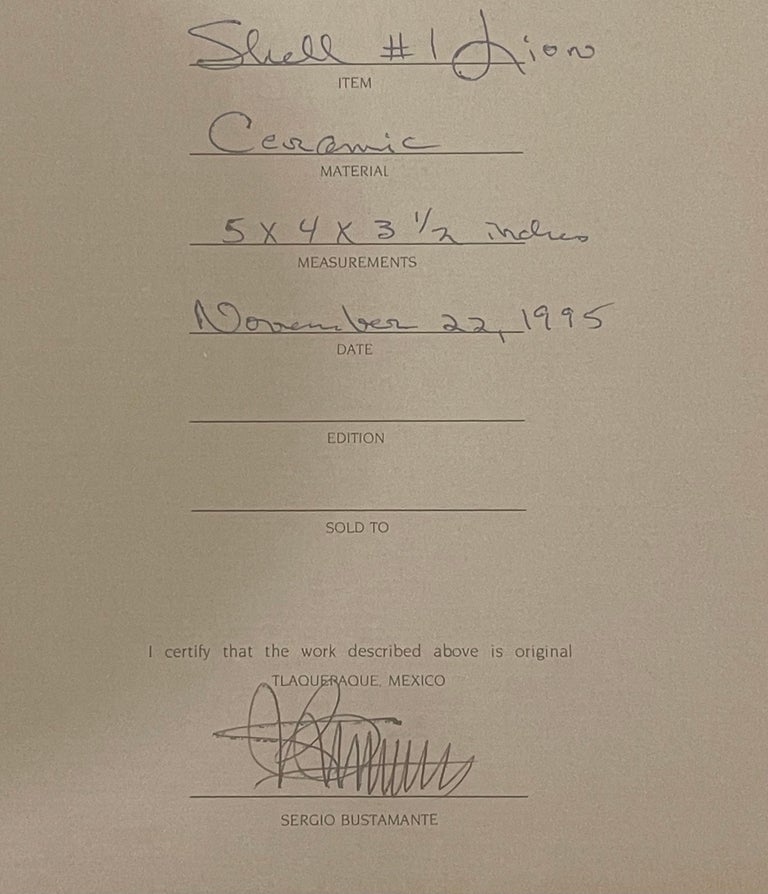 Shell #1 Lion
ITEM
Ceramic
MATERIAL
5 X 4 X 3 1/2 inches
MEASUREMENTS
November 22, 1995
DATE
EDITION
SOLD TO
I certify that the work described above is original
TLAQUERAQUE, MEXICO
SERGIO BUSTAMANTE